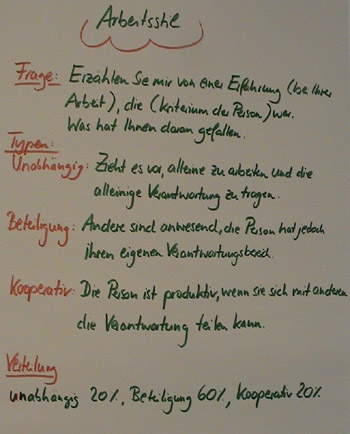 Arbeitsstil
Frage: Erzählen Sie mir von einer Erfahrung (bei Ihrer
Arbeit), die (Kriterium der Person) war.
Was hat Ihnen daran gefallen.
Typen:
Unabhängig: Zieht es vor, alleine zu arbeiten und die
alleinige Verantwortung zu tragen.
Beteiligung: Andere sind anwesend, die Person hat jedoch
ihren eigenen Verantwortungsbereich.
Kooperativ: Die Person ist produktiv, wenn sie sich mit anderen
die Verantwortung teilen kann.
Verteilung
unabhängig 20%, Beteiligung 60%, Kooperativ 20%